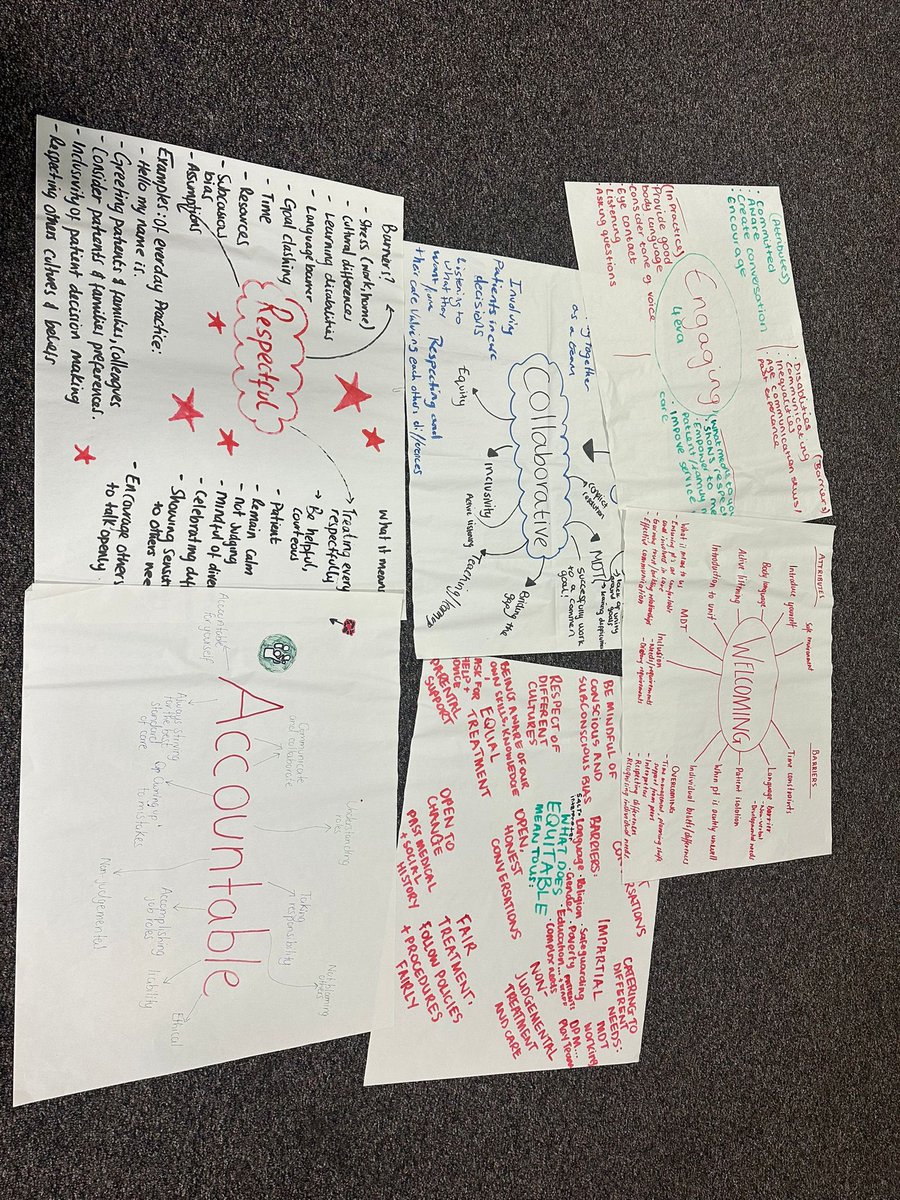 Engaging
4eva
(Attributes)
- Committed
- AWARE
- Create conversation
- Encourage
(In Practice)
Provide good
body language
Consider tone of voice
Eye contact
Listening
Asking questions
(Barriers)
- Disabilities
Communicating
Inequalities
Age communication
past experience
- Shows respect
- Empower to
patient/family
care
WELCOMING
ATTRIBUTES
Safe environment
Introduce yourself
Body language
Active listening
Introduction to unit
MDT
What it means to us
- Ensuring pt's are comfortable
and involved in care
- Effective communication
Inclusion
- Needs/requirements
- Dietary requirements
BARRIERS
Time constraints
Language barrier
- Non-verbal
- Developmental needs
Patient isolation
When pt is acutely unwell
Individual beliefs/differences
OVERCOMING
- Time management, planning shift,
support from peers
- Interpreter
- Respecting differences
- Recognising individual needs
Collaborative
together
as a team
Involving
Patients in care
decisions
Listening to
what they
want/love
Respecting and
their care Valuing each others differences
Equity
Inclusivity
Active listening
Bridging the
gap
Conflict
resolution
MDT
Successfully work
to a common
goal!
lack of unity
Respectful
Barriers?
- Stress (work/home)
- Cultural differences
- Learning disabilities
- Language barrier
- Goal clashing
- Time
- Resources
- Subconscious
bias
- Assumptions
Examples: of everyday Practice:
- Hello my name is.
- Greeting patients & families, colleagues
- Consider patients & families preferences.
- Inclusivity of patient decision making
- Respecting others cultures & beliefs
What it means
→ Treating every
respectfully
→ Be helpful
courteous
- Patient
- Remain calm
- not Judging
- mindful of
- Celebrating
- Showing
to others
- Encourage others
to talk openly
BE MINDFUL OF
CONSCIOUS AND
SUBCONSCIOUS BIAS
RESPECT OF
DIFFERENT
CULTURES
BEING AWARE OF OUR
OWN SKILLS/KNOWLEDGE
EQUAL
TREATMENT
ASK FOR
HELP +
ADVICE
PARENTAL
SUPPORT
BARRIERS:
Language
Religion
Safeguarding
Gender
Poverty
Education
Complex needs
WHAT DOES
EQUITABLE
MEAN TO US:
OPEN,
HONEST
CONVERSATIONS
OPEN TO
CHANGE
PAST MEDICAL
+ SOCIAL
HISTORY
CATERING TO
DIFFERENT
NEEDS:
MDT
Working
Play Team
IMPARTIAL
NON
JUDGEMENTAL
TREATMENT
AND CARE
FAIR
TREATMENT.
FOLLOW POLICIES
+ PROCEDURES
FAIRLY
Accountable
Accountable
for yourself
Communicate
and collaborate
Understanding
roles
Always striving
for the best
standard
of care
Owning up
to mistakes
Taking
responsibility
Not blaming
others
Non-judgemental
Accomplishing
job roles
liability
Ethical